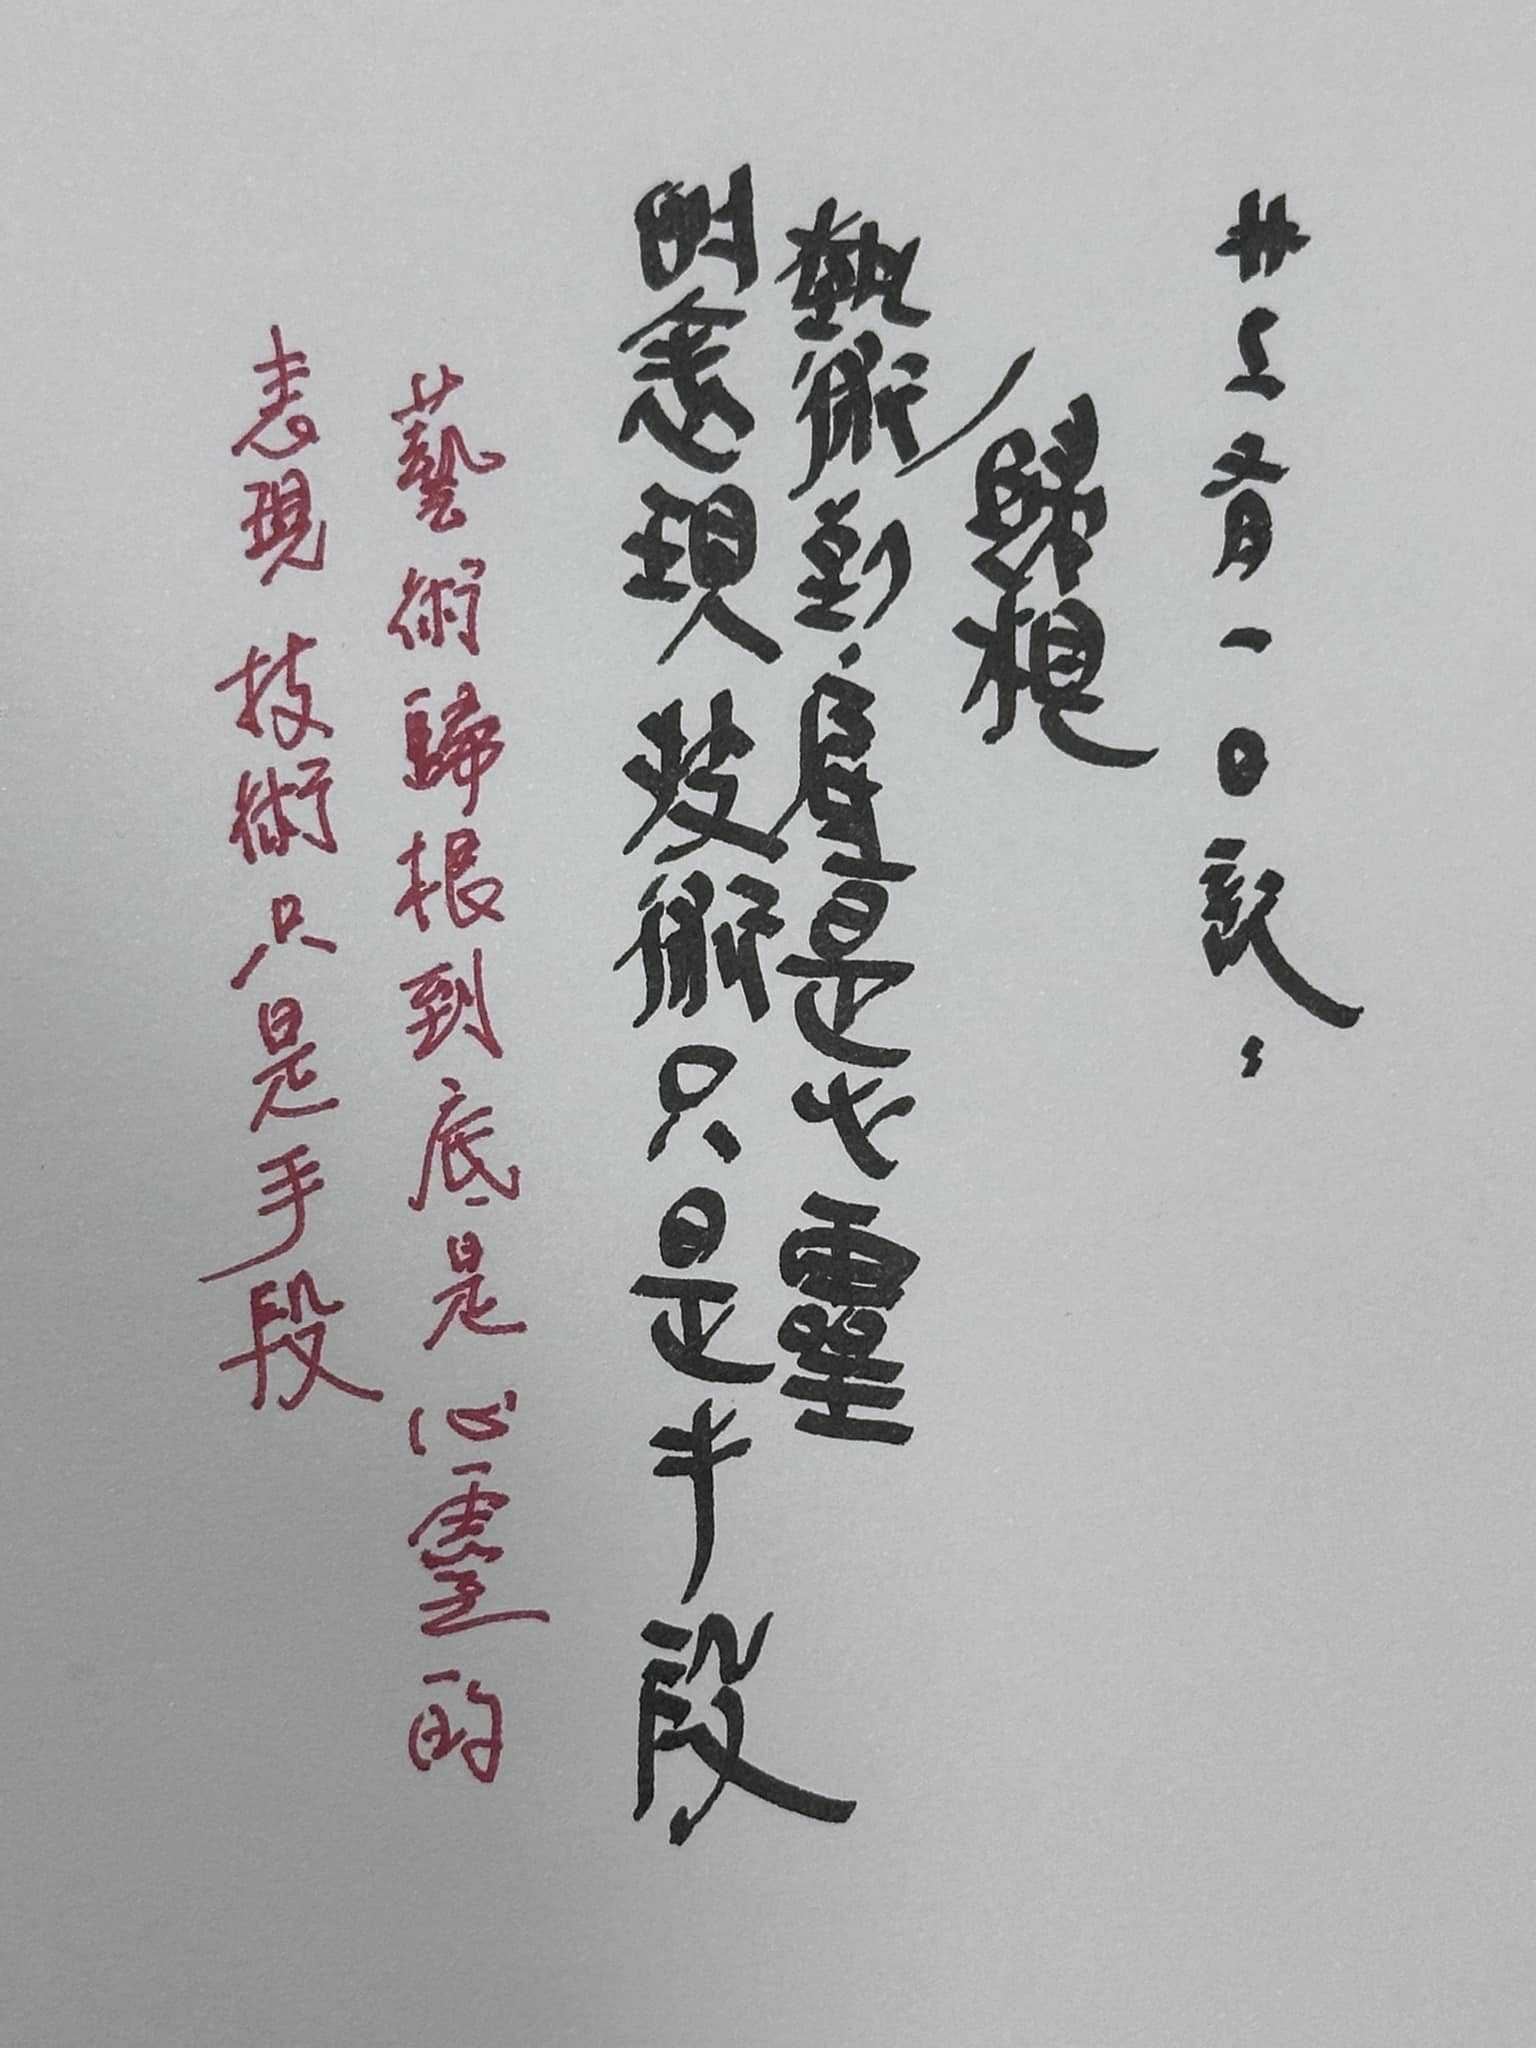 廿乙文月一〇記、
歸根
藝術到底是心靈
的表現技術只是手段
藝術歸根到底是心靈的
表現技術只是手段